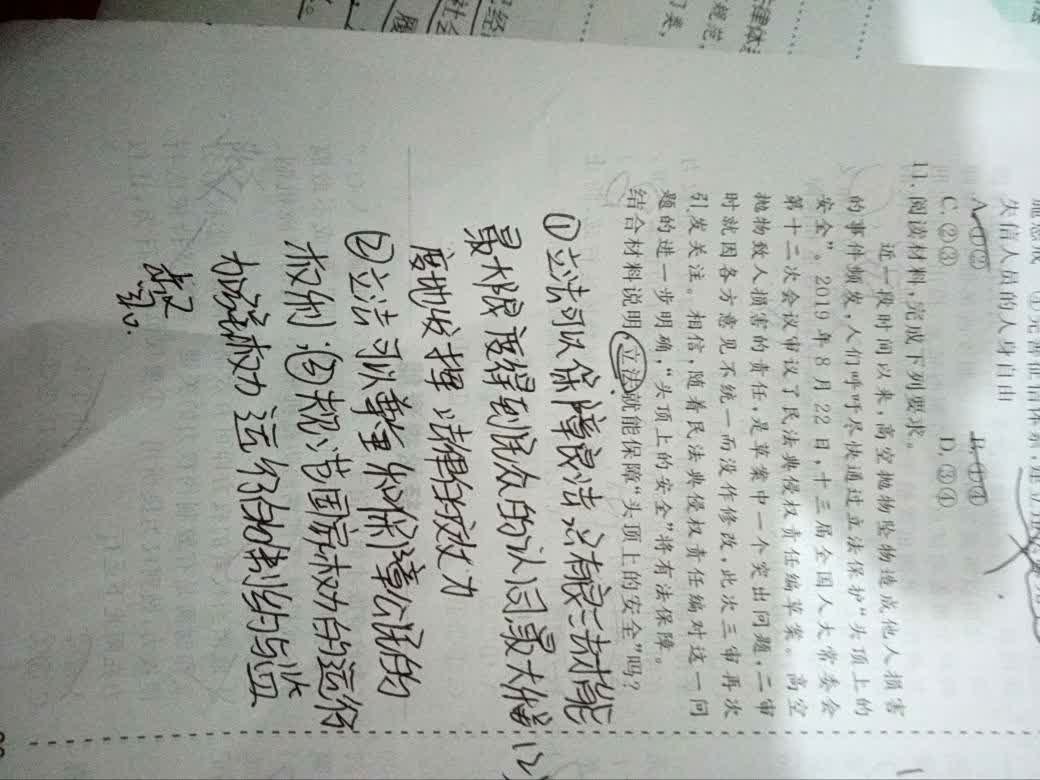 失信人员的人身自由
A.①②
B.①④
C.②③
D.③④
11.阅读材料,完成下列要求。
近一段时间以来,高空抛物坠物造成他人损害
的事件频发,人们呼吁尽快通过立法保护“头顶上的
安全”。2019年8月22日,十三届全国人大常委会
第十二次会议审议了民法典侵权责任编草案。高空
抛物致人损害的责任,是草案中一个突出问题,二审
时就因各方意见不统一而没作修改,此次三审再次
引发关注。相信,随着民法典侵权责任编对这一问
题的进一步明确,“头顶上的安全”将有法保障。
结合材料说明,立法就能保障“头顶上的安全”吗?
①立法可以保障良法,只有良法才能
最大限度得到民众的认同最大
度地发挥法律的效力
②立法可以尊重和保障公民的
权利;③规范国家权力的运行
加强权力运行的制约与监